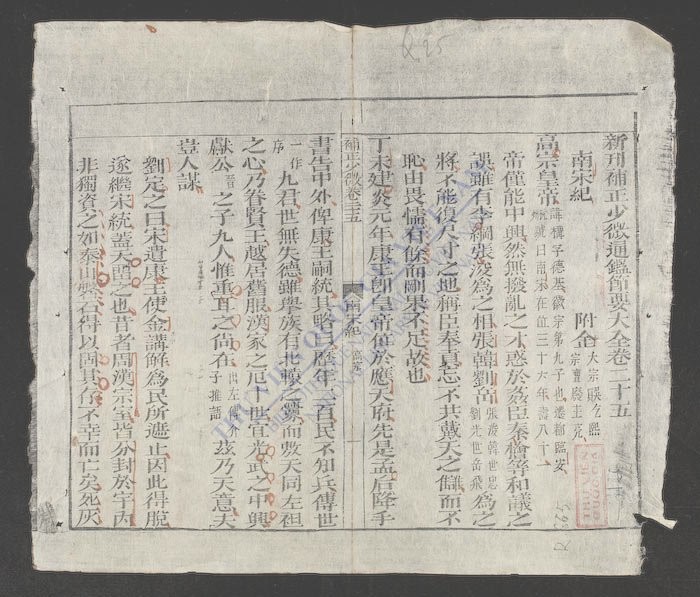 新刊補正少微通鑑節要大全卷二十五
南宋紀
附金 太宗晟 熙宗亶 廢主亮
高宗皇帝 諱構字德基徽宗第九子也遷都臨安號曰南宋在位三十六年壽八十一
帝僅能中興然無撥亂之才惑於姦臣秦檜等和議之
誤雖有李綱張浚為之相張韓劉岳 張浚韓世忠劉光世岳飛 為之
將不能復尺寸之地稱臣奉貢忘不共戴天之讎而不
恥由畏懦有餘而剛果不足故也
丁未建炎元年康王即皇帝位於應天府先是孟后降手
補正少微卷二十五
南宋紀 高宗
書告中外俾康王嗣統其略曰歷年二百民不知兵傳世
序 一作 九君世無失德雖舉族有北轅之釁而敷天同左袒
之心乃眷賢王越居舊服漢家之厄十世宜光武之中興
獻公 晉 之子九人惟重耳之尚在 出左傳介子推語 茲乃天意夫
豈人謀
劉定之曰宋遣康王使金講解為民所遮止因此得脫
遂繼宋統蓋天啓之也昔者周漢宗室皆分封於宇內
非獨資之如泰山磐石得以固其位不幸而亡矣死灰